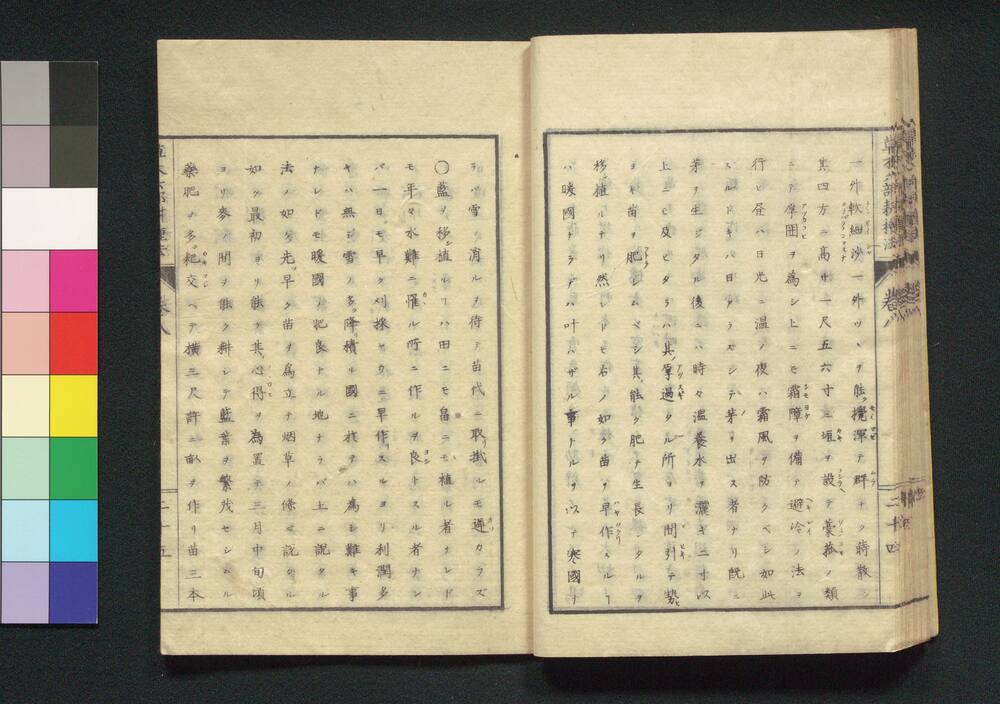 草木六部耕種法 巻八 二十四
一外軟細沙一外ツヽヲ能攪渾テ群ナク蒔散シ
其四方ニ高サ一尺五六寸ニ垣ヲ設テ藁菰ノ類
ニテ厚囲ヲ為シ上ニモ霜障ヲ備テ避冷ノ法ヲ
行ヒ昼ハ日光ニ温ノ夜ハ霜風ヲ防クベシ如此
スルトキハ日ナラズシテ芽ヲ出ス者ナリ既ニ
芽ヲ生ジタル後ニハ時々温養水ヲ灑ギ二寸以
上ニモ及ビタラハ其厚過タル所ヨリ間引テ勢
ヨキ苗ヲ肥シムベシ其能ク肥テ生長シタルヲ
移植ルナリ然レドモ右ノ如ク苗ヲ早作スルハ
暖國ナラデハ叶ハザル事トルヲ以テ寒國ニ
テハ雪ノ消ルヲ待テ苗代ニ取掛ルモ遲カラズ
〇藍ヲ移植ルハ田ニモ畠ニモ植ル者ナレド
モ年々水難ニ罹ル所ニ作ルヲ良トスル者ナレ
バ一日モ早ク刈採ヤウニ早作スルヨリ利潤多
キハ無シ雪ノ多降積ル國ニ於テハ為シ難キ事
ナレドモ暖國ノ肥良ナル地ナラバ上ニ説タル
法ノ如ク先早ク苗ヲ為立テ烟草ノ條ニ説タル
如ク最初ヨリ能ク其心得ヲ為置テ三月中旬頃
ヨリ麥ノ間ヲ能ク耕シテ藍葉ヲ繁茂セシムル
藥肥ヲ多ク糺交ベテ横三尺許ニ畝ヲ作リ苗三本